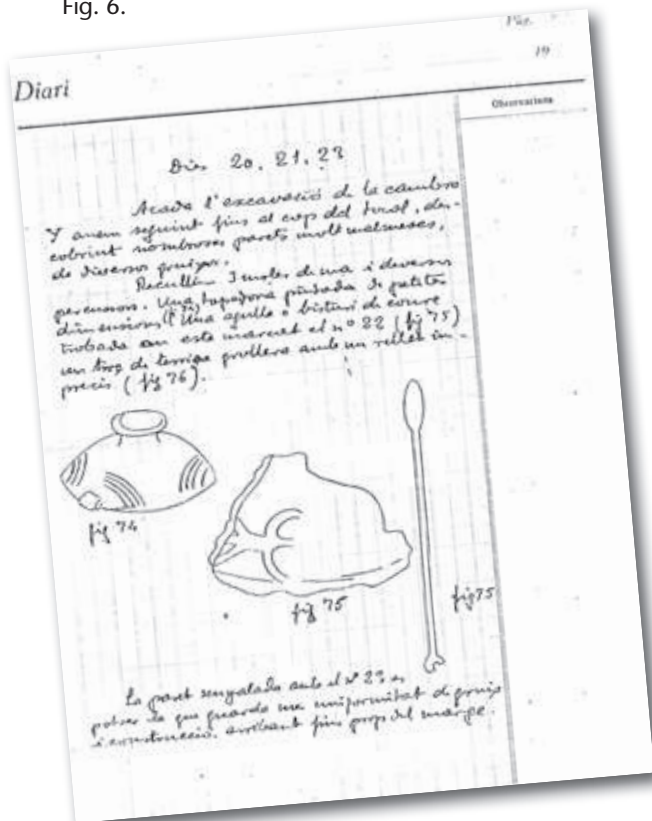 Fig. 6.
Pàg.
19
Diari
Observacions
Dies 20, 21, 22
Acaba l'excavació de la cambra
Y anem seguint fins al cap del , des-
cobrint nombroses parets molt malmeses,
de diversos gruixos.
Recullim 3 moles de ma i diversos
percusors. Una tapadora pintada de petites
dimensions Una agulla o bisturi de coure
trobada on este marcat el nº 22 (fig 75)
un troç de terrissa grollera amb un relleu im-
precis (fig 76).
fig 74
fig 75
fig 75
La paret senyalada amb el nº 23 es
potser la que guarda una uniformitat de gruix
i construcció, arribant fins prop del marge.